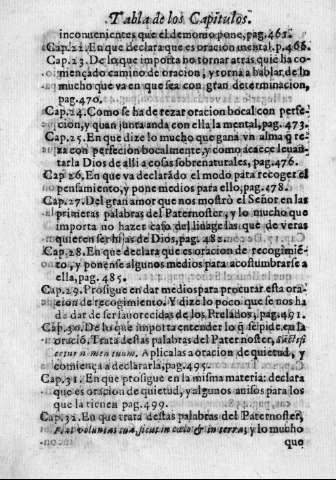 Tabla de los Capitulos.
inconuenientes que el demonio pone, pag. 463.
Cap. 22. En que declara que es oracion mental. p. 466.
Cap. 23. De lo que importa no tornar atras quiē ha co-
mençado camino de oracion, y torna a hablar de lo
mucho que va en que sea con gran determinacion,
pag. 470.
Cap. 24. Como se ha de rezar oracion bocal con perfe-
cion, y quan junta anda con ella la mental, pag. 473.
Cap. 25. En que dize lo mucho que gana vn alma q̄ re-
za con perfecion bocalmente, y como acaece leuan-
tarla Dios de alli a cosas sobrenaturales, pag. 476.
Cap 26. En que va declarādo el modo para recoger el
pensamiento, y pone medios para ello, pag. 478.
Cap. 27. Del gran amor que nos mostrò el Señor en las
primeras palabras del Paternoster, y lo mucho que
importa no hazer caso del linage las que de veras
quieren ser hijas de Dios, pag. 482.
Cap. 28. En que declara que es oracion de recogimiē-
to, y ponense algunos medios para acostumbrarse a
ella, pag. 485.
Cap. 29. Prosigue en dar medios para procurar esta ora-
cion de recogimiento. Y dize lo poco que se nos ha
de dar de ser fauorecidas de los Prelados, pag. 491.
Cap. 30. De lo que importa entender lo q̄ se pide en la
oraciō. Trata destas palabras del Paternoster, sanctifi
cetur nomen tuum. Aplicalas a oracion de quietud, y
comiença a declararla, pag. 495.
Cap. 31. En que prosigue en la misma materia: declara
que es oracion de quietud, y algunos auisos para los
que la tienen pag. 499.
Cap. 32. En que trata destas palabras del Paternoster,
Fiat voluntas tua sicut in cælo & in terra; y lo mucho
que